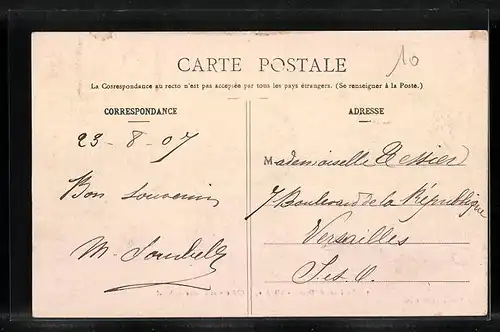 10
CARTE POSTALE
La Correspondance au recto n'est pas acceptée par tous les pays étrangers. (Se renseigner à la Poste.)
CORRESPONDANCE
23-8-07
Bon souvenir
M.
ADRESSE
Mademoiselle Tessier
7 Boulevard de la République
Versailles
S. et O.